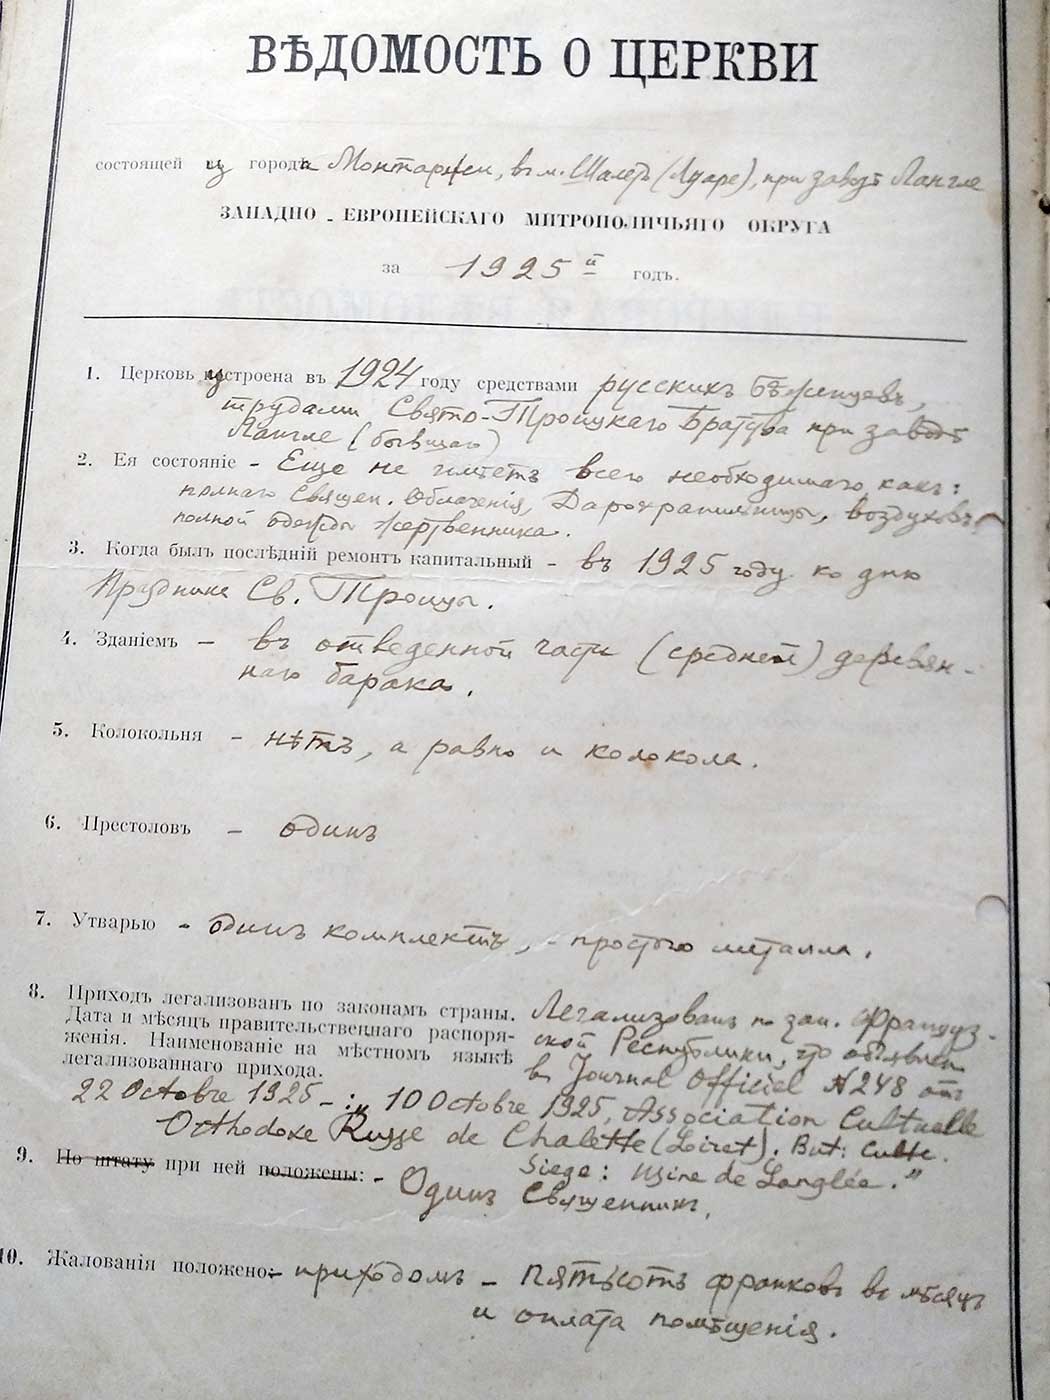 ВѢДОМОСТЬ О ЦЕРКВИ
состоящей из города Монтаржи, въ м. Шалетъ (Луаре), при заводѣ Лангле
ЗАПАДНО-ЕВРОПЕЙСКАГО МИТРОПОЛИЧЬЯГО ОКРУГА
за 1925й годъ.
1. Церковь устроена въ 1924 году средствами русскихъ бѣженцевъ,
трудами Свято-Троицкаго Братства при заводѣ
Лангле (бывшаго)
2. Ея состояніе - Еще не имѣетъ всего необходимаго какъ:
полнаго Священ. Облаченія, Дарохранильницы, воздуховъ,
полной одежды жертвенника.
3. Когда былъ послѣдній ремонтъ капитальный - въ 1925 году ко дню
Праздника Св. Троицы.
4. Зданіемъ - въ отведенной части (средней) деревян-
наго барака.
5. Колокольня - нѣтъ, а равно и колокола.
6. Престоловъ - одинъ
7. Утварью - одинъ комплектъ, - простого металла.
8. Приходъ легализованъ по законамъ страны. Легализованъ по зак. Француз-
Дата и мѣсяцъ правительственнаго распоря- ской Республики, что объявлен
женія. Наименованіе на мѣстномъ языкѣ въ Journal Officiel N248 отъ
легализованнаго прихода.
22 Octobre 1925 - : „10 Octobre 1925, Association Cultuelle
Orthodoxe Russe de Chalette (Loiret). But: Culte.
Siege: Usine de Langlée."
9. По штату при ней положены: - Одинъ Священникъ.
10. Жалованія положено: - приходомъ - пятьсотъ франковъ въ мѣсяцъ
и оплата помѣщенія.